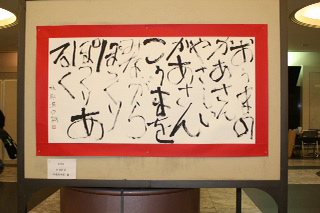 おうまの
かあさん
やさしい
かあさん
こうまを
みながら
ぽっくり
ぽっくりあ
るく